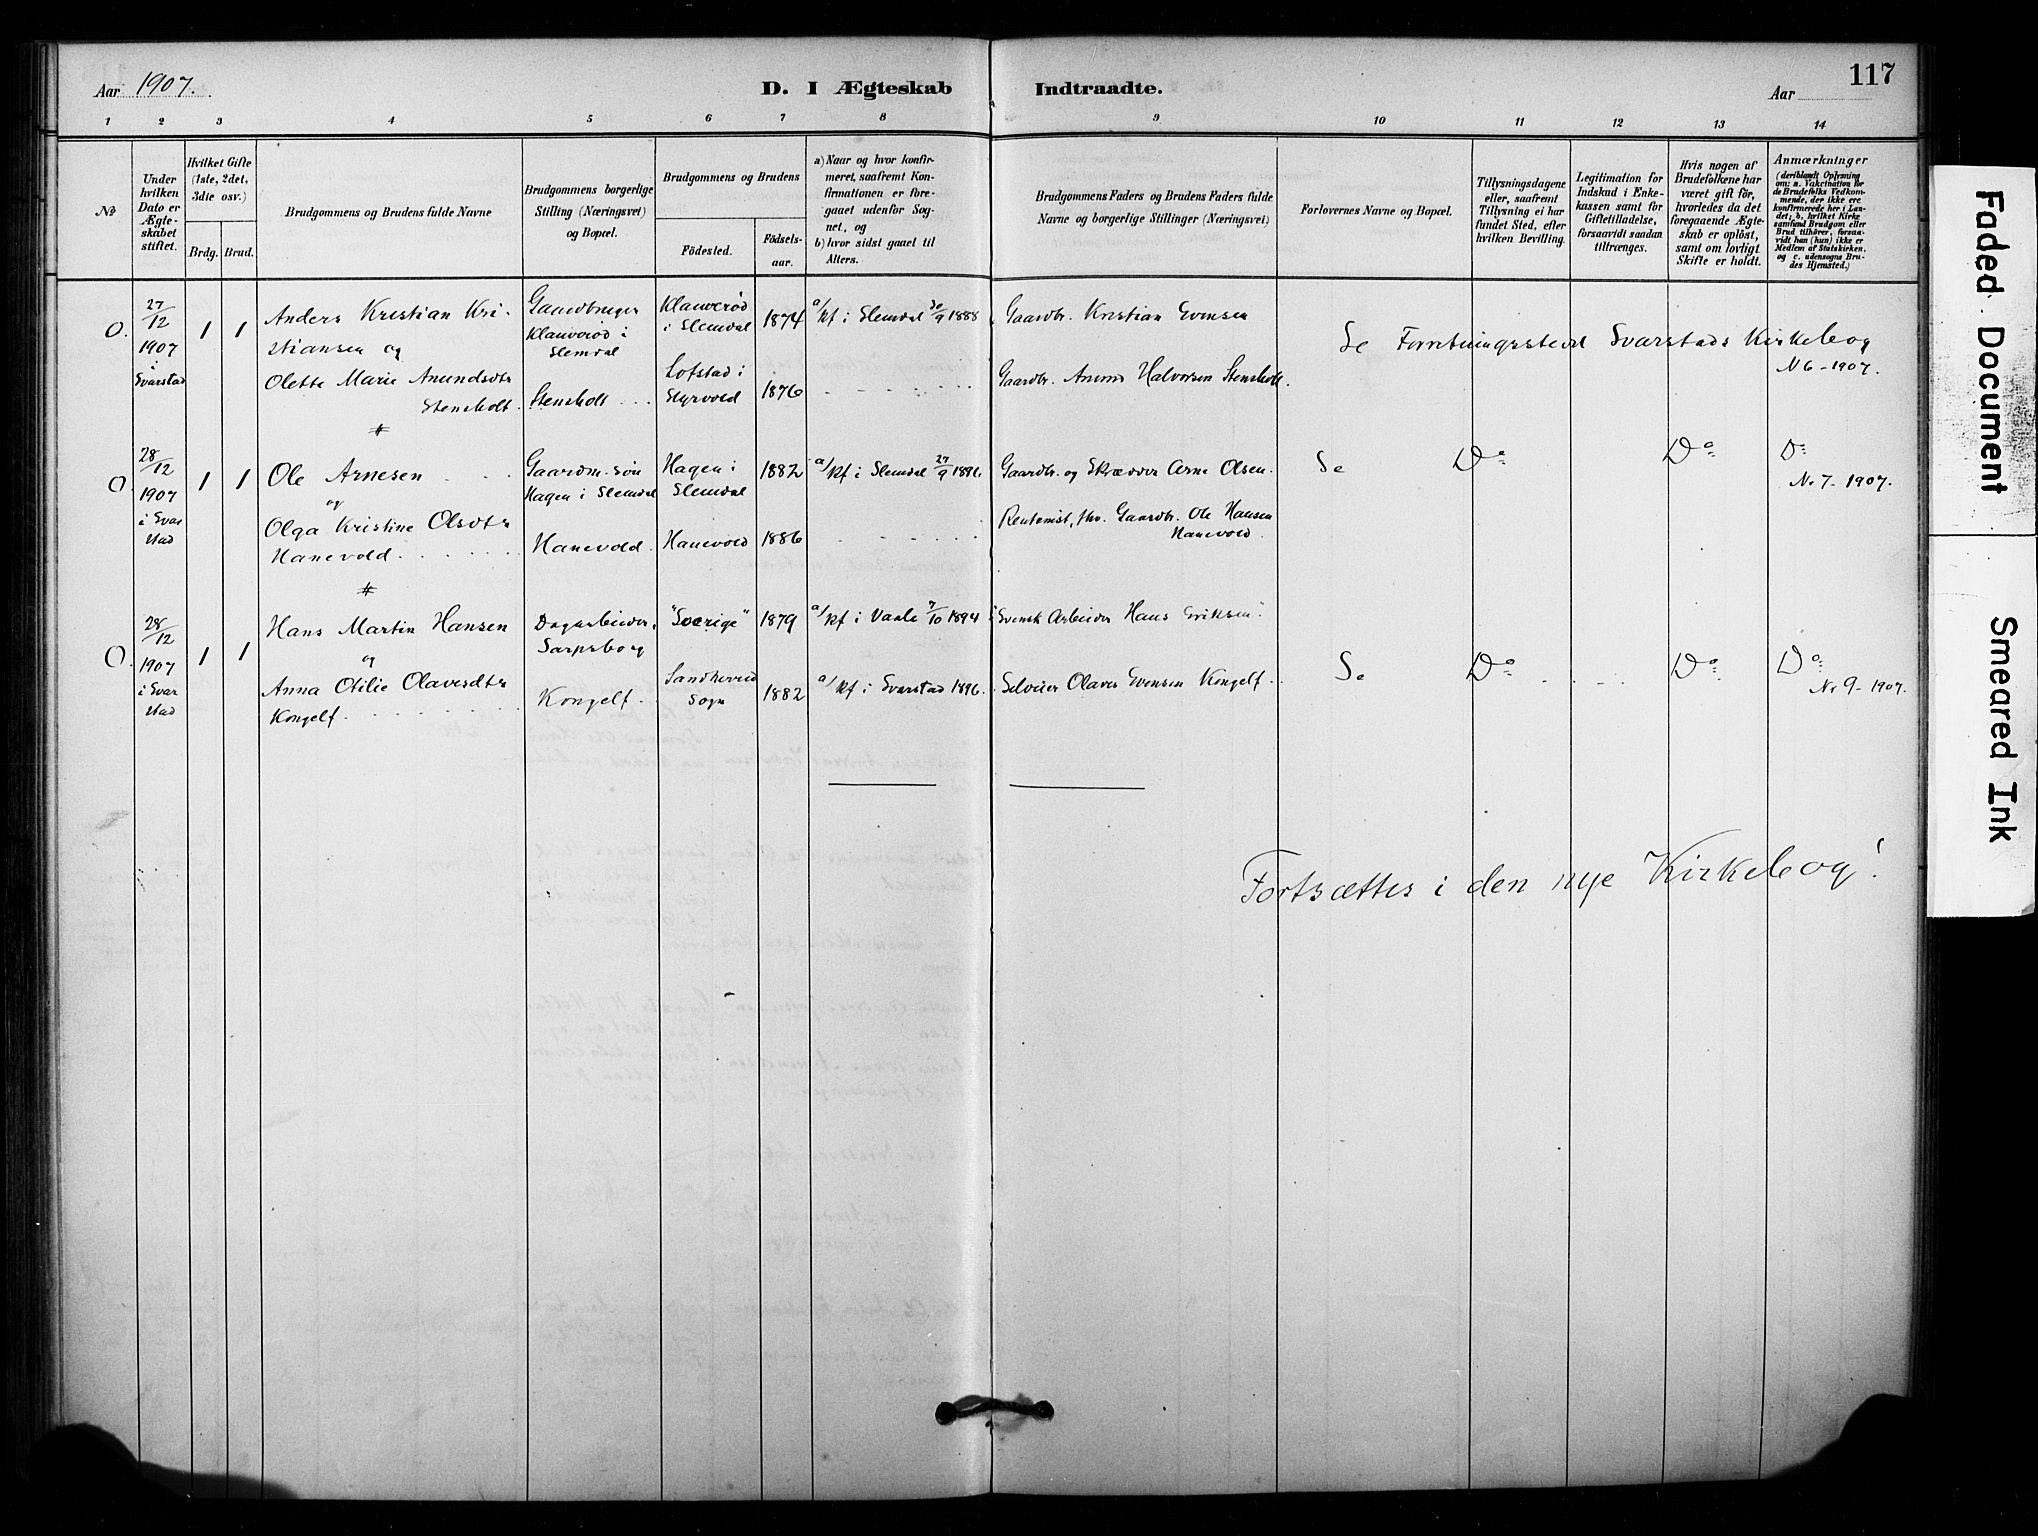 Aar 1907.
D. I Ægteskab Indtraadte.
117
Aar
1 2 3 4 5 6 7 8 9 10 11 12 13 14
No
Under hvilken Dato er Ægteskabet stiftet.
Hvilket Gifte (1ste, 2det, 3die osv.)
Brdg. Brud.
Brudgommens og Brudens fulde Navne
Brudgommens borgerlige Stilling (Næringsvei) og Bopæl.
Brudgommens og Brudens
Födested.
Födselsaar.
a) Naar og hvor konfirmeret, saafremt Konfirmationen er foregaaet udenfor Sognet, og
b) hvor sidst gaaet til Alters.
Brudgommens Faders og Brudens Faders fulde Navne og borgerlige Stillinger (Næringsvei)
Forlovernes Navne og Bopæl.
Tillysningsdagene eller, saafremt Tillysning ei har fundet Sted, efter hvilken Bevilling.
Legitimation for Indskud i Enkekassen samt for Giftetilladelse, forsaavidt saadan tiltrænges.
Hvis nogen af Brudefolkene har været gift för, hvorledes da det foregaaende Ægteskab er oplöst, samt om lovligt Skifte er holdt.
Anmærkninger (deriblandt Oplysning om: a. Vakcination for de Brudefolks Vedkommende, der ikke ere konfirmerede her i Landet; b. hvilket Kirkesamfund Brudgom eller Brud tilhörer, forsaavidt han (hun) ikke er Medlem af Statskirken, og c. udensogns Brudes Hjemsted.)
O. 27/12 1907 i Svarstad 1 1
Anders Kristian Kristiansen og
Gaardbruger Klauverød i Slemdal
Klauverød i Slemdal 1874
a/ Kf i Slemdal 30/9 1888
Gaardbr. Kristian Evensen
Se Forretningssted Svarstads Kirkebog
N 6 - 1907.
Olette Marie Anundsdtr Stensholt.
Stensholt
Lofstad i Styrvold 1876
Gaardbr. Anund Halvorsen Stensholt.
#
O. 28/12 1907 i Svarstad 1 1
Ole Arnesen
og
Gaardm. søn Hagen i Slemdal
Hagen i Slemdal 1882
a/ Kf i Slemdal 27/9 1896
Gaardbr. og Skrædder Arne Olsen.
Se Do Do Do
Nr 7 - 1907.
Olga Kristine Olsdtr Hanevold
Hanevold
Hanevold 1886
Rentenist, fhv. Gaardbr. Ole Hansen Hanevold.
#
O. 28/12 1907 i Svarstad 1 1
Hans Martin Hansen
og
Dagarbeider, Sarpsborg
"Sverige" 1879
a/ Kf i Vaale 7/10 1894
"Svensk Arbeider Hans Eriksen"
Se Do Do Do
Nr 9 - 1907.
Anna Otilie Olavesdtr Kongelf.
Kongelf
Sandherred Sogn 1882
a/ Kf i Svarstad 1896.
Selveier Olaves Evensen Kongelf.
Fortsættes i den nye Kirkebog!
Faded Document
Smeared Ink